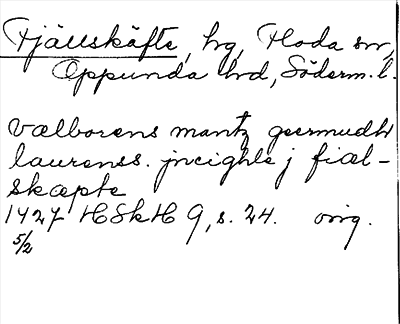 Fjällskäfte, hg, Floda sn,
Oppunda hd, Söderm. l.
vælborens mantz geermudh
laurenss. jncighle j fiæl-
skæpte
1427 HSkH 9, s. 24. orig.
5/2